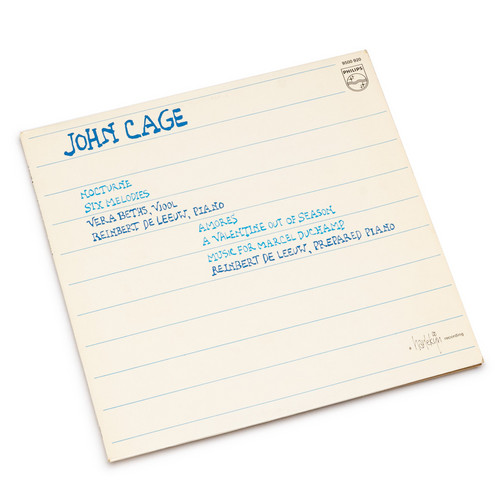 9500 920
PHILIPS
JOHN CAGE
NOCTURNE
SIX MELODIES
VERA BETHS, VIOOL
REINBERT DE LEEUW, PIANO
AMORES
A VALENTINE OUT OF SEASON
MUSIC FOR MARCEL DUCHAMP
REINBERT DE LEEUW, PREPARED PIANO
a harlekijn recording